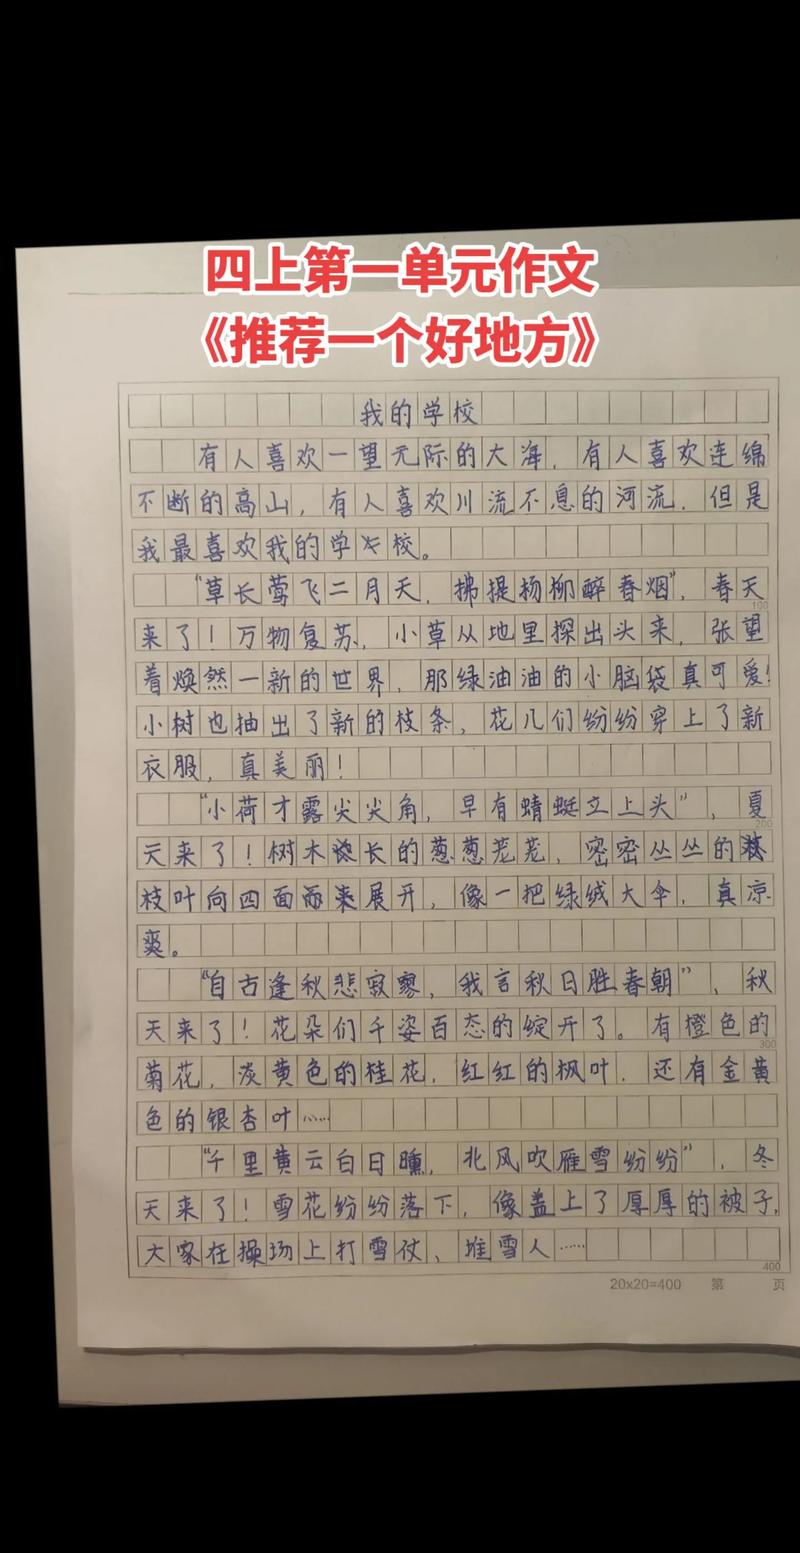 四上第一单元作文
《推荐一个好地方》
我的学校
有人喜欢一望无际的大海，有人喜欢连绵
不断的高山，有人喜欢川流不息的河流，但是
我最喜欢我的学校。
“草长莺飞二月天，拂堤杨柳醉春烟”，春天
来了！万物复苏，小草从地里探出头来，张望
着焕然一新的世界，那绿油油的小脑袋真可爱！
小树也抽出了新的枝条，花儿们纷纷穿上了新
衣服，真美丽！
100
“小荷才露尖尖角，早有蜻蜓立上头”，夏
天来了！树木长的葱葱茏茏，密密丛丛的
枝叶向四面展开，像一把绿绒大伞，真凉
爽。
200
“自古逢秋悲寂寥，我言秋日胜春朝”，秋
天来了！花朵们千姿百态的绽开了。有橙色的
菊花，淡黄色的桂花，红红的枫叶，还有金黄
色的银杏叶……
300
“千里黄云白日曛，北风吹雁雪纷纷”，冬
天来了！雪花纷纷落下，像盖上了厚厚的被子，
大家在操场上打雪仗、堆雪人……
400
20x20=400 第 页